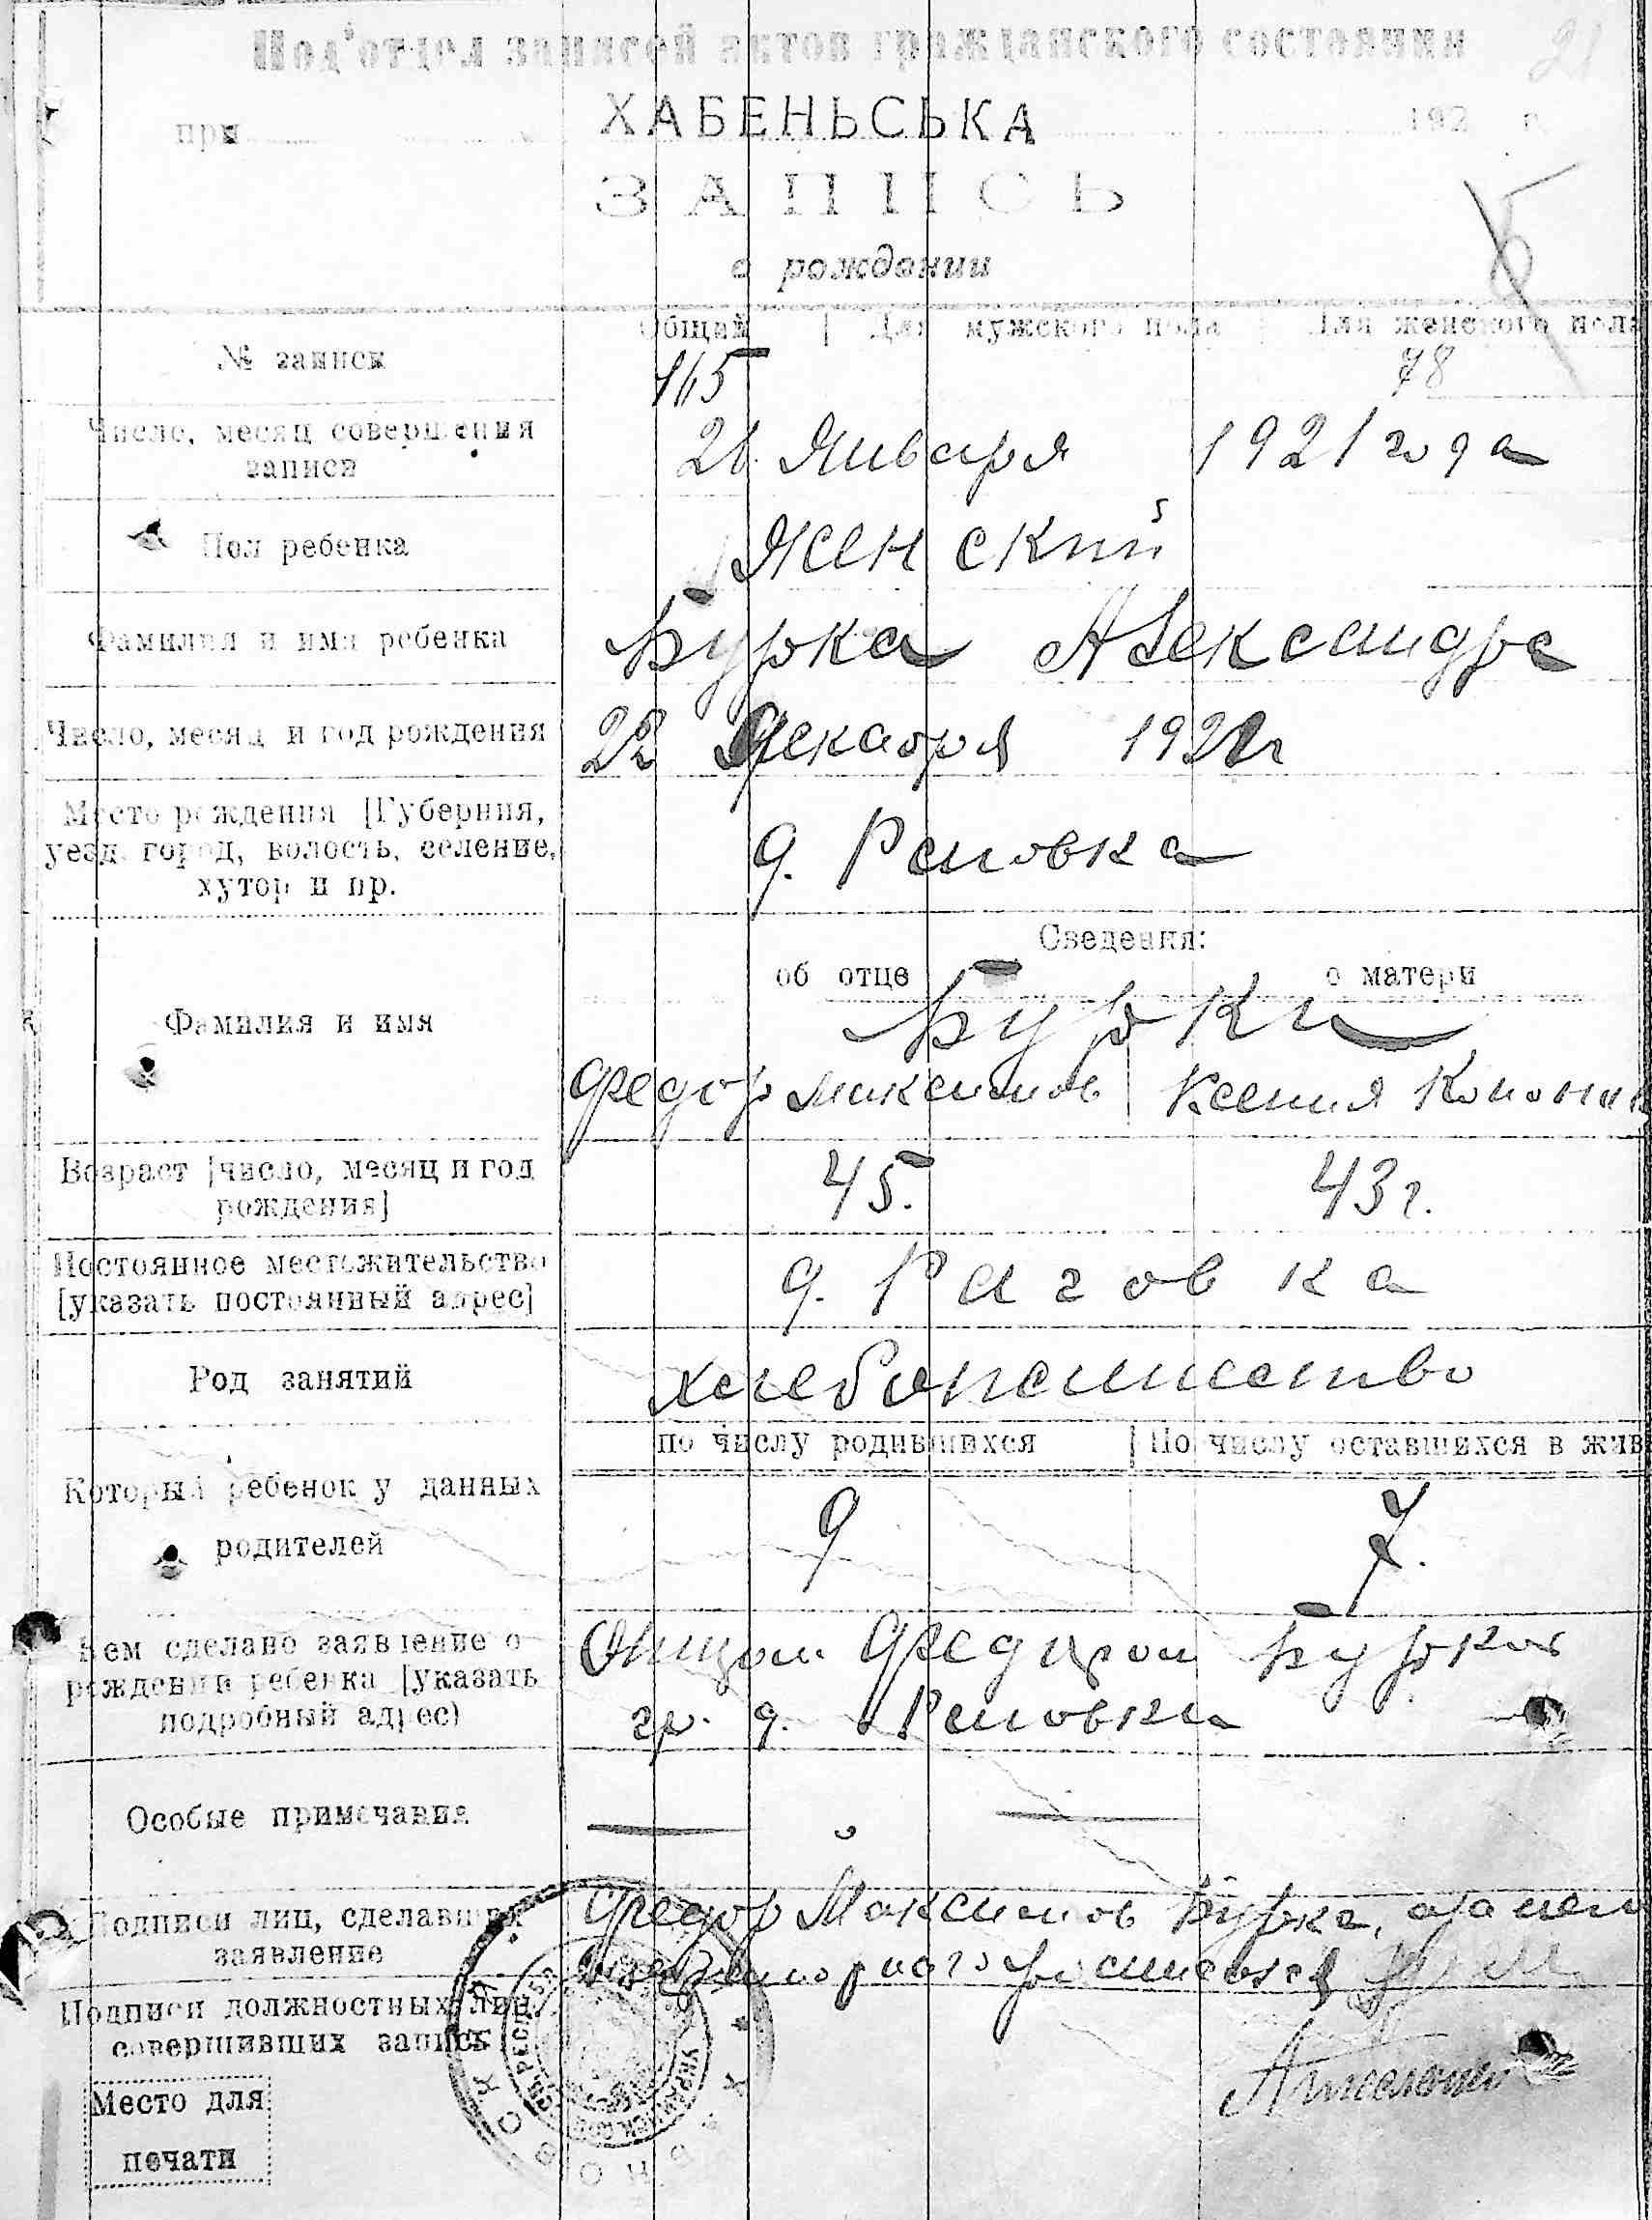 Под'отдел записей актов гражданского состояния
21
при ХАБЕНЬСЬКА 192 г.
ЗАПИСЬ
о рождении
№ записи
Общий | Для мужского пола | Для женского пола
165 78
Число, месяц совершения
записи
21 Января 1921 года
Пол ребенка
Женский
Фамилия и имя ребенка
Бурка Александра
Число, месяц и год рождения
22 Декабря
Место рождения [Губерния,
уезд, город, волость, селение,
хутор и пр.
д. Раговка
Сведения:
об отце о матери
Фамилия и имя
Бурки
Федор Максимов Ксения
Возраст [число, месяц и год
рождения]
45. 43 г.
Постоянное местожительство
[указать постоянный адрес]
д. Раговка
Род занятий
хлебопашество
по числу родившихся | По числу оставшихся в жив
Который ребенок у данных
родителей
9 7.
Кем сделано заявление о
рождении ребенка [указать
подробный адрес)
Отцом Федором Бурка
гр. д. Раговка
Особые примечания
Подписи лиц, сделавших
заявление
Федор Максимов Бурка, а за него
неграмотного росписался
Подписи должностных лиц,
совершивших запись
Место для
печати